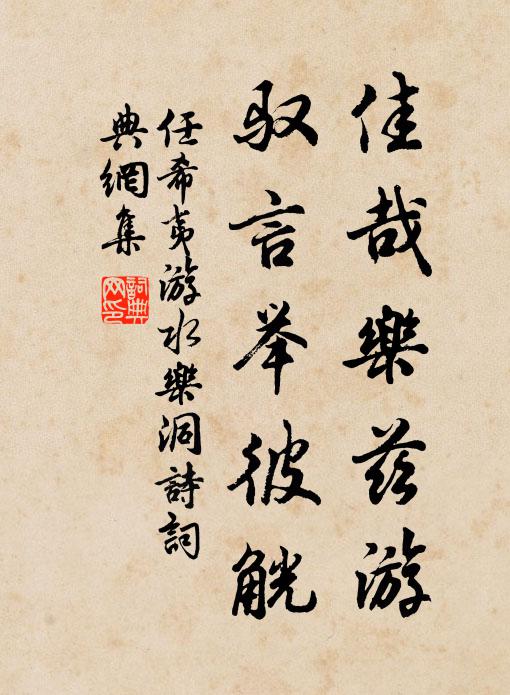 佳哉樂茲游
馭言举彼觥
任希夷游水樂洞詩詞
典網集
詞典网印